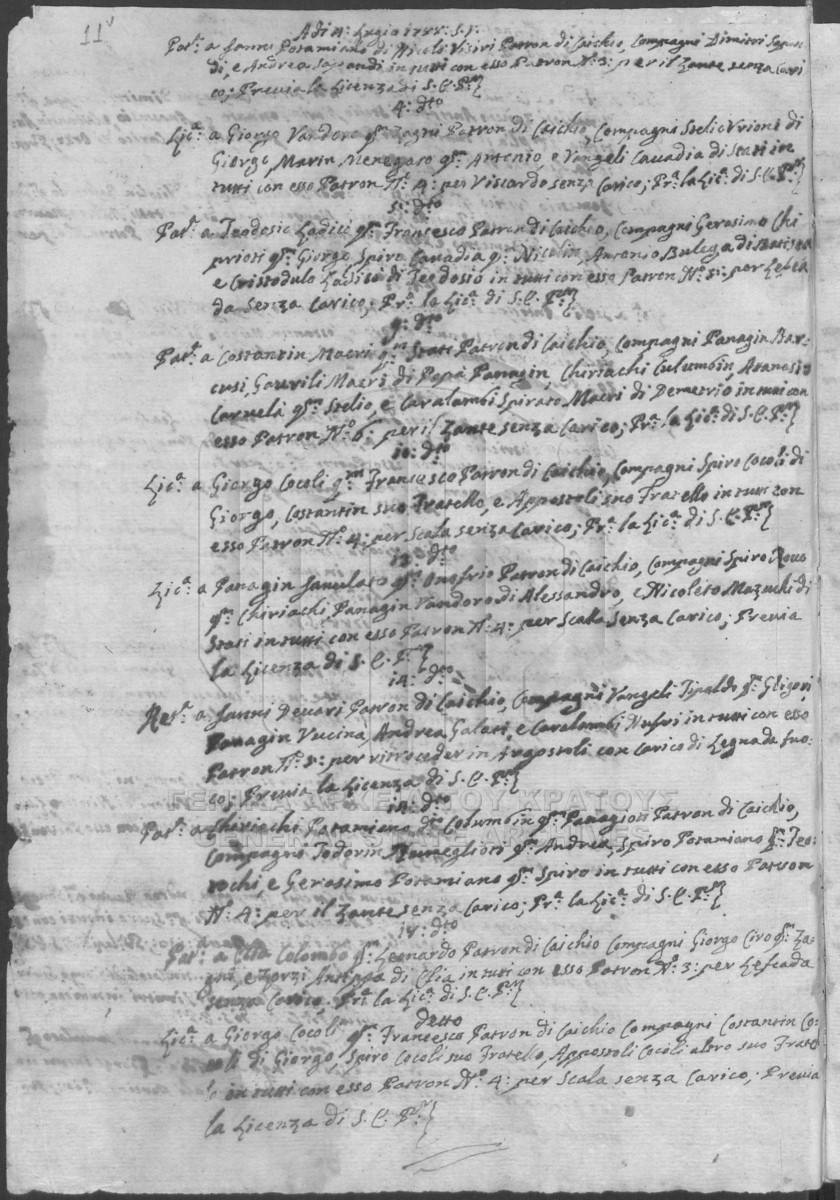 11v
Adi 4: Luglio 1755: S.V:
Pat.a a Janni Potamiano di Nicolò Patron di Caichio, Compagni Dimitri
di, e Andrea in tutti con esso Patron N.o 3: per il Zante senza Cari
co; Previa la Licenza di S.E.P.
4: dto
Lic.a a Giorgo Vandoro qm Zagni Patron di Caichio, Compagni Stelio Vrioni di
Giorgo, Marin Menegato qm Antonio, e Vangeli Cavadia di Stati in
tutti con esso Patron N.o 4: per Viscardo senza Carico; Pr.a la Lic.a di S.E.P.
5: dto
Pat.a a Teodosio Ladici qm Francesco Patron di Caichio, Compagni Gerasimo Chi
prioti qm Giorgo, Spiro Cavadia qm Nicolin, Antonio Bulega di Battista
e Cristodulo Ladici di Teodosio in tutti con esso Patron N.o 5: per Lefca
da senza Carico; Pr.a la Lic.a di S.E.P.
9: dto
Pat.a a Costantin Macri qm Stati Patron di Caichio, Compagni Panagin Bar-
cusi, Gavrili Macri di Papà Panagin, Chiriachi Culumbin, Atanasio
Carvelà qm Stelio, e Caralambi Spirato Macri di Demetrio in tutti con
esso Patron N.o 6: per il Zante senza Carico; Pr.a la Lic.a di S.E.P.
10: dto
Lic.a a Giorgo Cocoli qm Francesco Patron di Caichio, Compagni Spiro Cocoli di
Giorgo, Costantin suo Fratello, e Appostoli suo Fratello in tutti con
esso Patron N.o 4: per Scala senza Carico; Pr.a la Lic.a di S.E.P.
13: dto
Lic.a a Panagin Janulato qm Onofrio Patron di Caichio, Compagni Spiro
qm Chiriachi Panagin Vandoro di Alessandro, e Nicoleto Mazuchi di
Stati in tutti con esso Patron N.o 4: per Scala senza Carico; Previa
la Licenza di S.E.P.
14: dto
a Janni Devari Patron di Caichio, Compagni Vangeli Tipaldo qm Gligori
Panagin Vuccina, Andrea Galati, e Caralambi Nufri in tutti con esso
Patron N.o 5: per ritroceder in Argostoli con Carico di Legna da fuo-
co; Previa la Licenza di S.E.P.
dto
Pat.a a Chiriachi Potamiano dto Columbin qm Panagioti Patron di Caichio,
Compagno Todorin qm Andrea, Spiro Potamiano qm Teo
rochi, e Gerasimo Potamiano qm Spiro in tutti con esso Patron
N.o 4: per il Zante senza Carico; Pr.a la Lic.a di S.E.P.
15: dto
Pat.a a Elia Colombo qm Leonardo Patron di Caichio Compagni Giorgo Ciro qm Za-
gni, e Zorzi Antippa di Elia in tutti con esso Patron N.o 3: per Lefcada
senza Carico; Pr.a la Lic.a di S.E.P.
detto
Lic.a a Giorgo Cocoli qm Francesco Patron di Caichio Compagni Costantin Co-
coli di Giorgo, Spiro Cocoli suo Fratello, Appostoli Cocoli altro suo Fratel
lo in tutti con esso Patron N.o 4: per Scala senza Carico; Previa
la Licenza di S.E.P.
ΓΕΝΙΚΑ ΑΡΧΕΙΑ ΤΟΥ ΚΡΑΤΟΥΣ
GENERAL STATE ARCHIVES